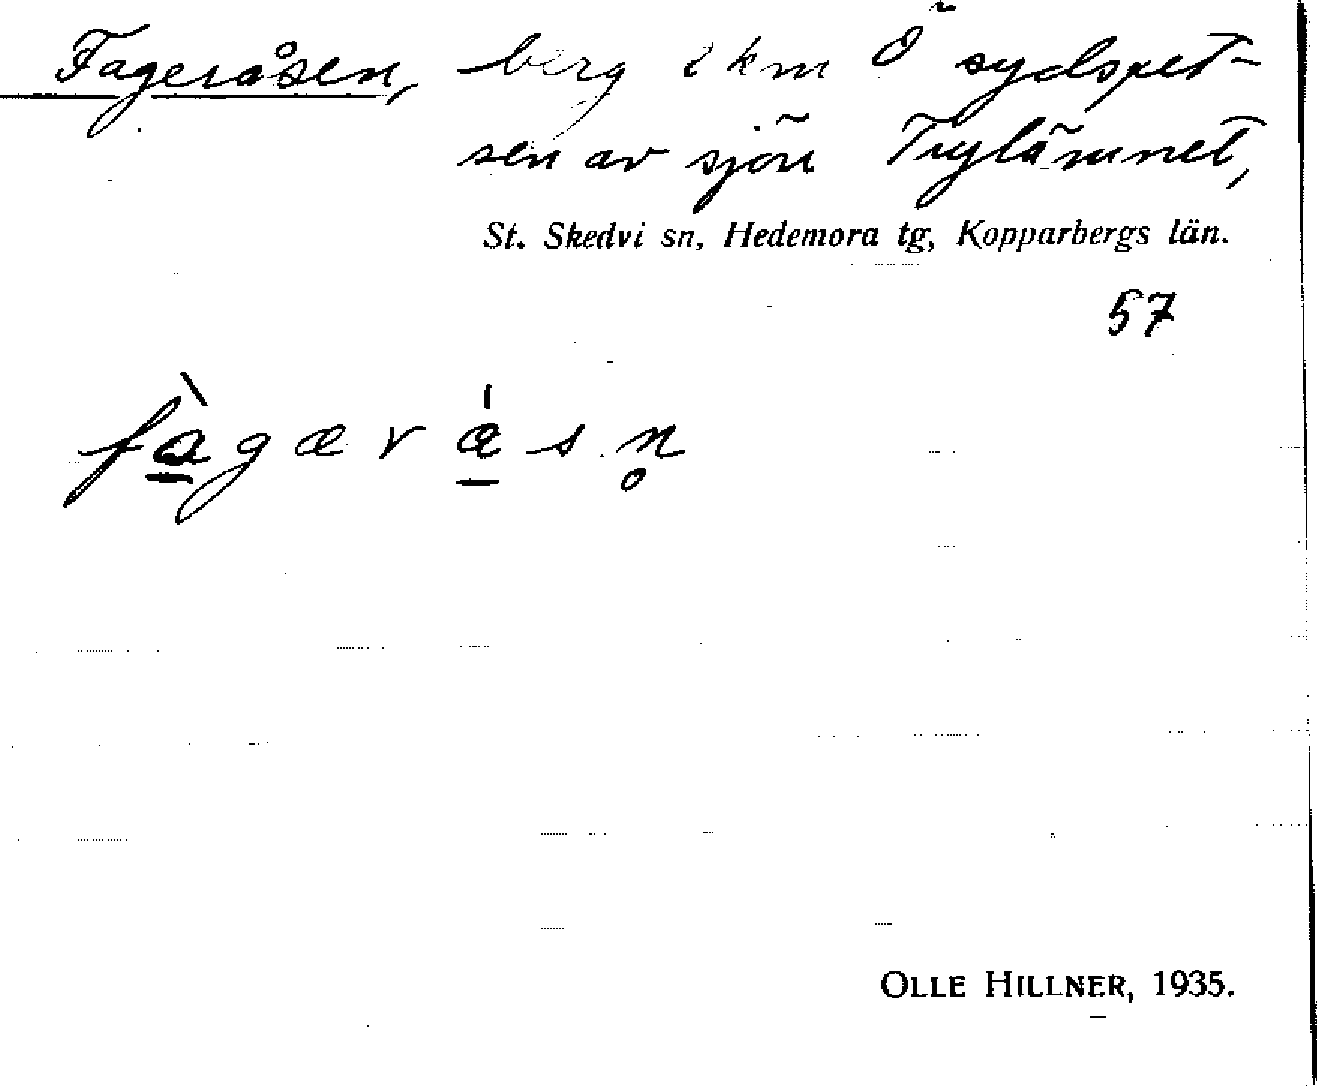 Fageråsen, berg 2 km Ö sydspet-
sen av sjön Trylämnet,
St. Skedvi sn, Hedemora tg, Kopparbergs län.
57
fàgæråsn̥
OLLE HILLNER, 1935.